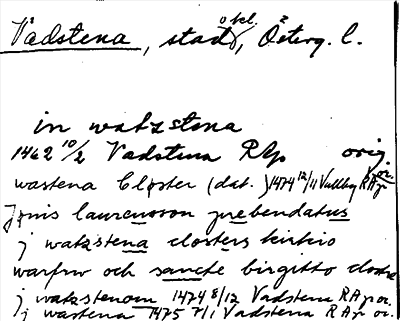 Vadstena, stad o. kl., Österg. l.
in watzstena
1462 10/2 Vadstena RAp orig.
wastena Closter (dat.) 1474 12/11 RAp or.
Jønis laurensson prebendatus
j watzstena closters kirkio
warfrw och sancte birgitto closter
j watzstenom 1474 8/12 Vadstena RAp or.
j wastena 1475 7/1 Vadstena RAp or.